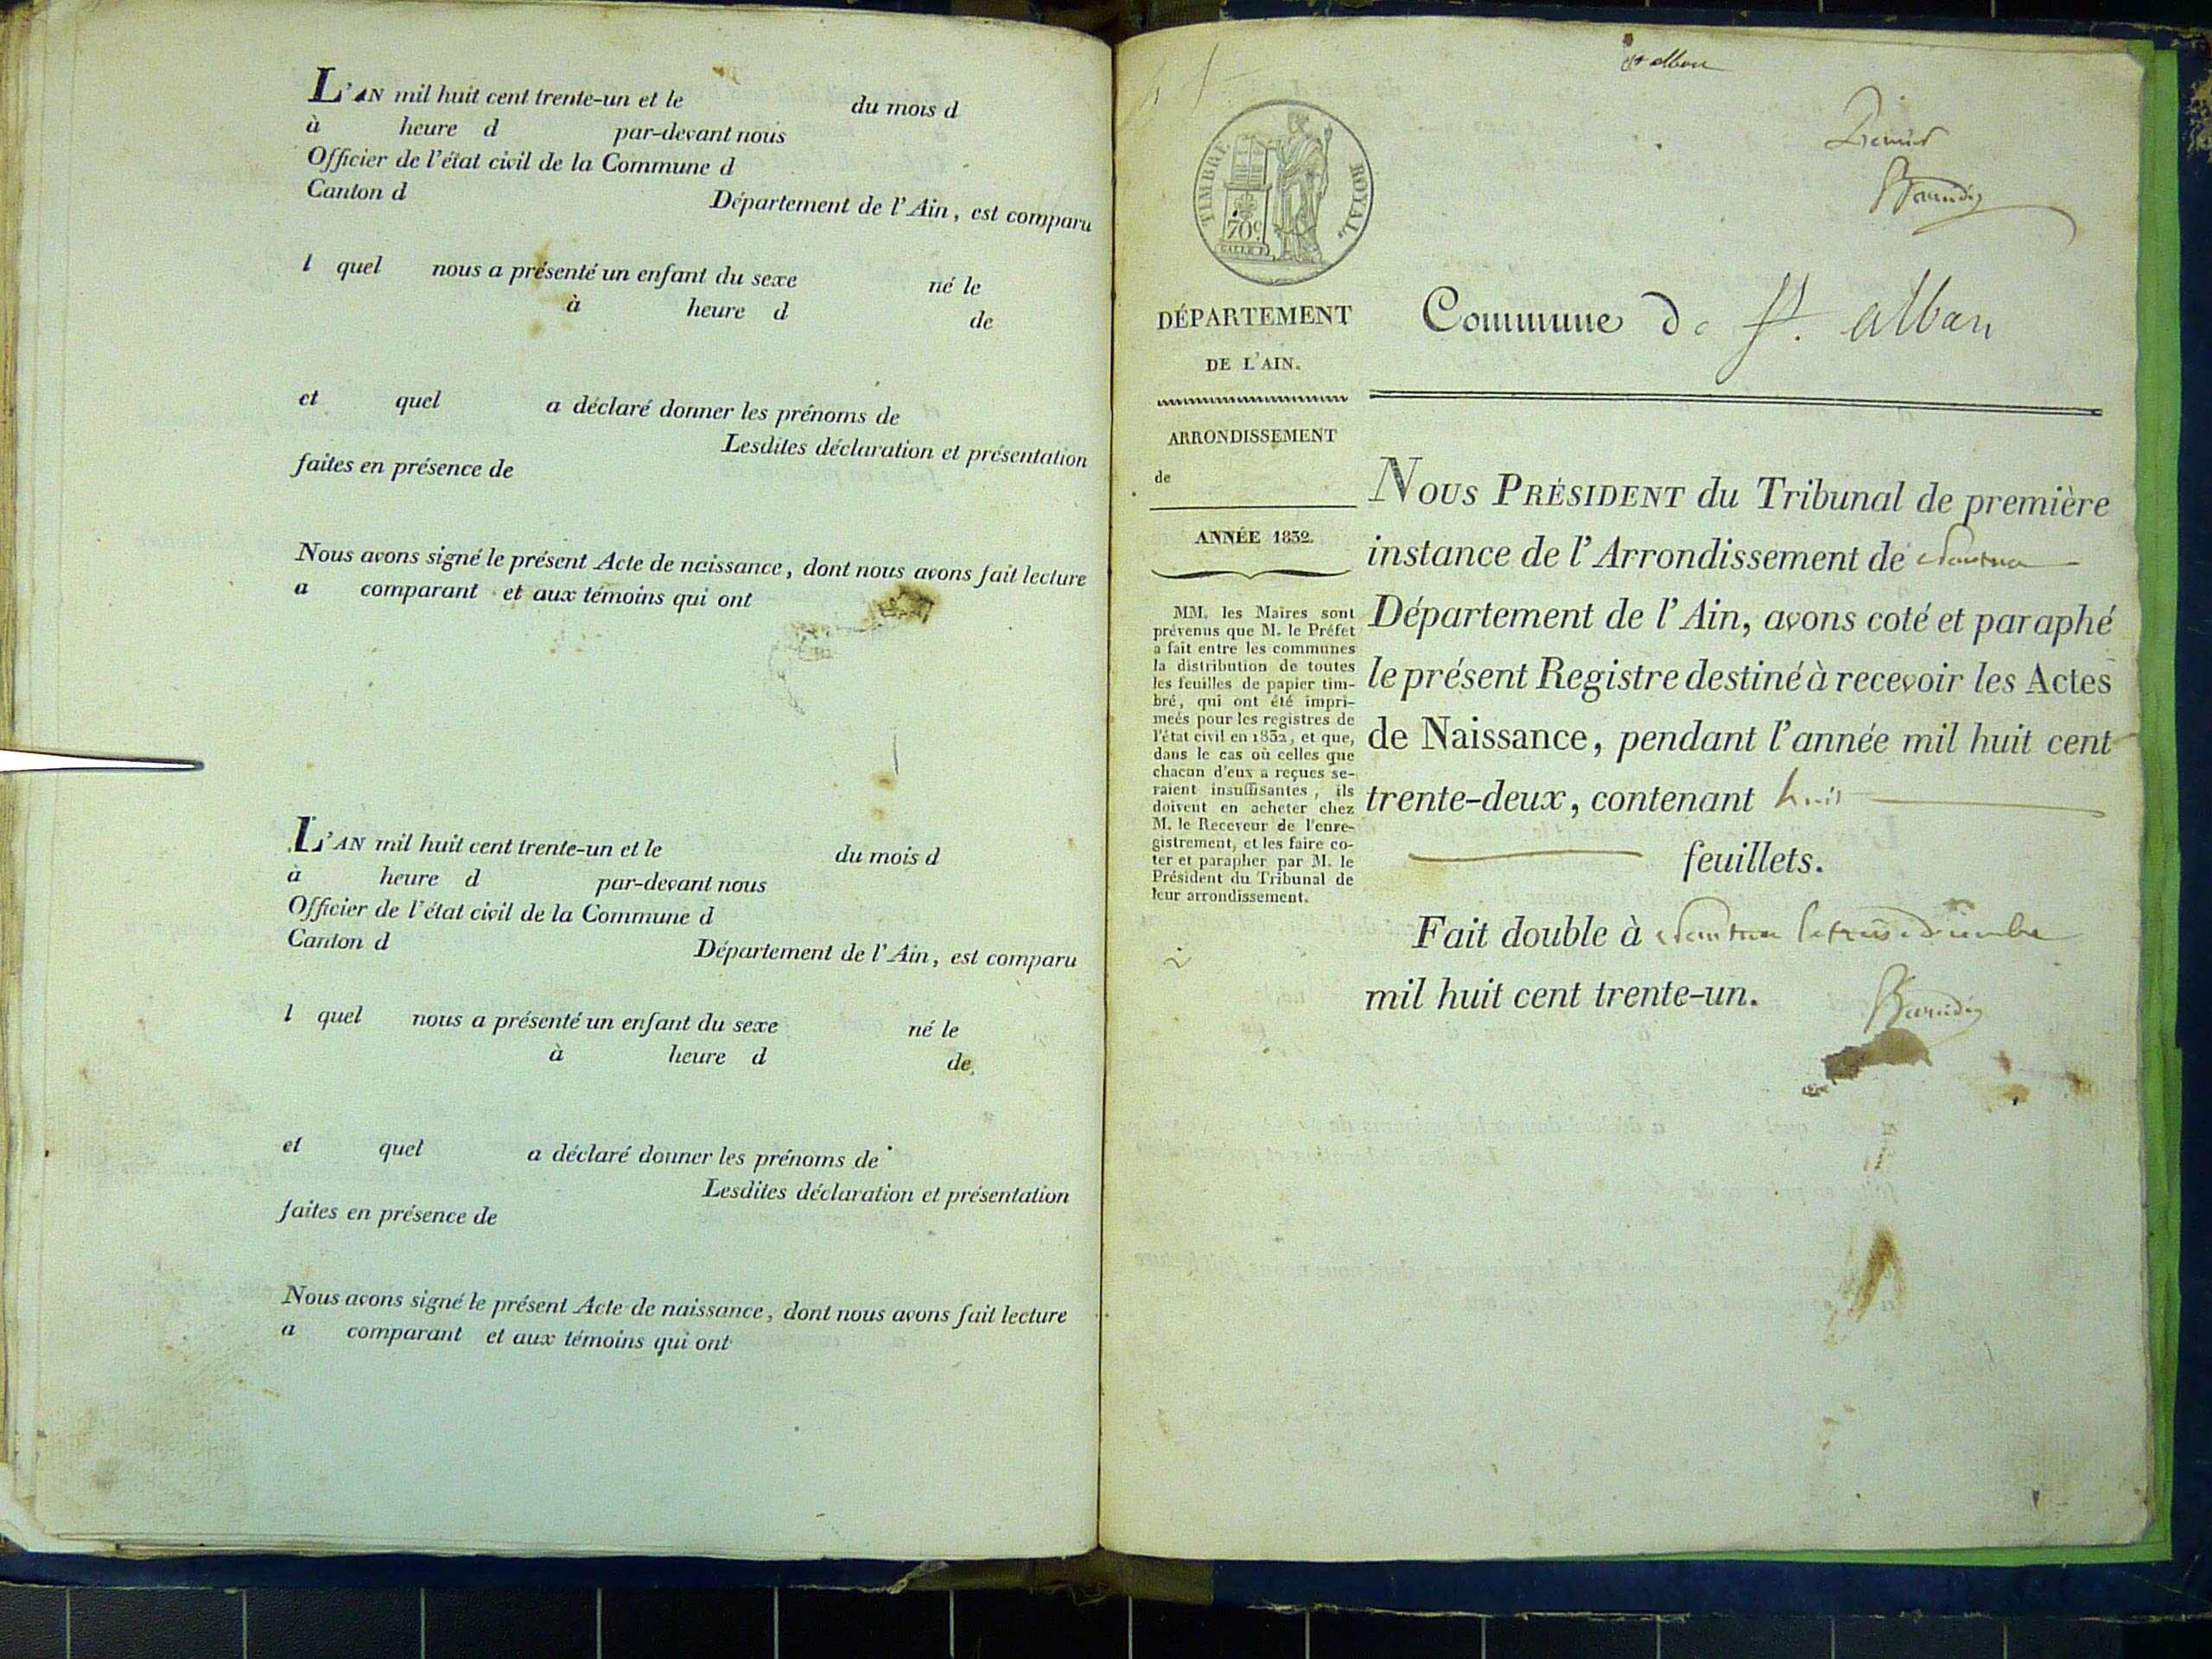 L'AN mil huit cent trente-un et le du mois d
à heure d par-devant nous
Officier de l'état civil de la Commune d
Canton d Département de l'Ain, est comparu
l quel nous a présenté un enfant du sexe né le
à heure d de
et quel a déclaré donner les prénoms de
Lesdites déclaration et présentation
faites en présence de
Nous avons signé le présent Acte de naissance, dont nous avons fait lecture
a comparant et aux témoins qui ont
L'AN mil huit cent trente-un et le du mois d
à heure d par-devant nous
Officier de l'état civil de la Commune d
Canton d Département de l'Ain, est comparu
l quel nous a présenté un enfant du sexe né le
à heure d de
et quel a déclaré donner les prénoms de
Lesdites déclaration et présentation
faites en présence de
Nous avons signé le présent Acte de naissance, dont nous avons fait lecture
a comparant et aux témoins qui ont
St alban
TIMBRE ROYAL
70c
DÉPARTEMENT
DE L'AIN.
ARRONDISSEMENT
de
ANNÉE 1832.
MM. les Maires sont
prévenus que M. le Préfet
a fait entre les communes
la distribution de toutes
les feuilles de papier tim-
bré, qui ont été impri-
meés pour les registres de
l'état civil en 1832, et que,
dans le cas où celles que
chacun d'eux a reçues se-
raient insuffisantes, ils
doivent en acheter chez
M. le Receveur de l'enre-
gistrement, et les faire co-
ter et parapher par M. le
Président du Tribunal de
leur arrondissement.
Commune de St. alban
NOUS PRÉSIDENT du Tribunal de première
instance de l'Arrondissement de Nantua
Département de l'Ain, avons coté et paraphé
le présent Registre destiné à recevoir les Actes
de Naissance, pendant l'année mil huit cent
trente-deux, contenant huit
feuillets.
Fait double à Nantua le décembre
mil huit cent trente-un.